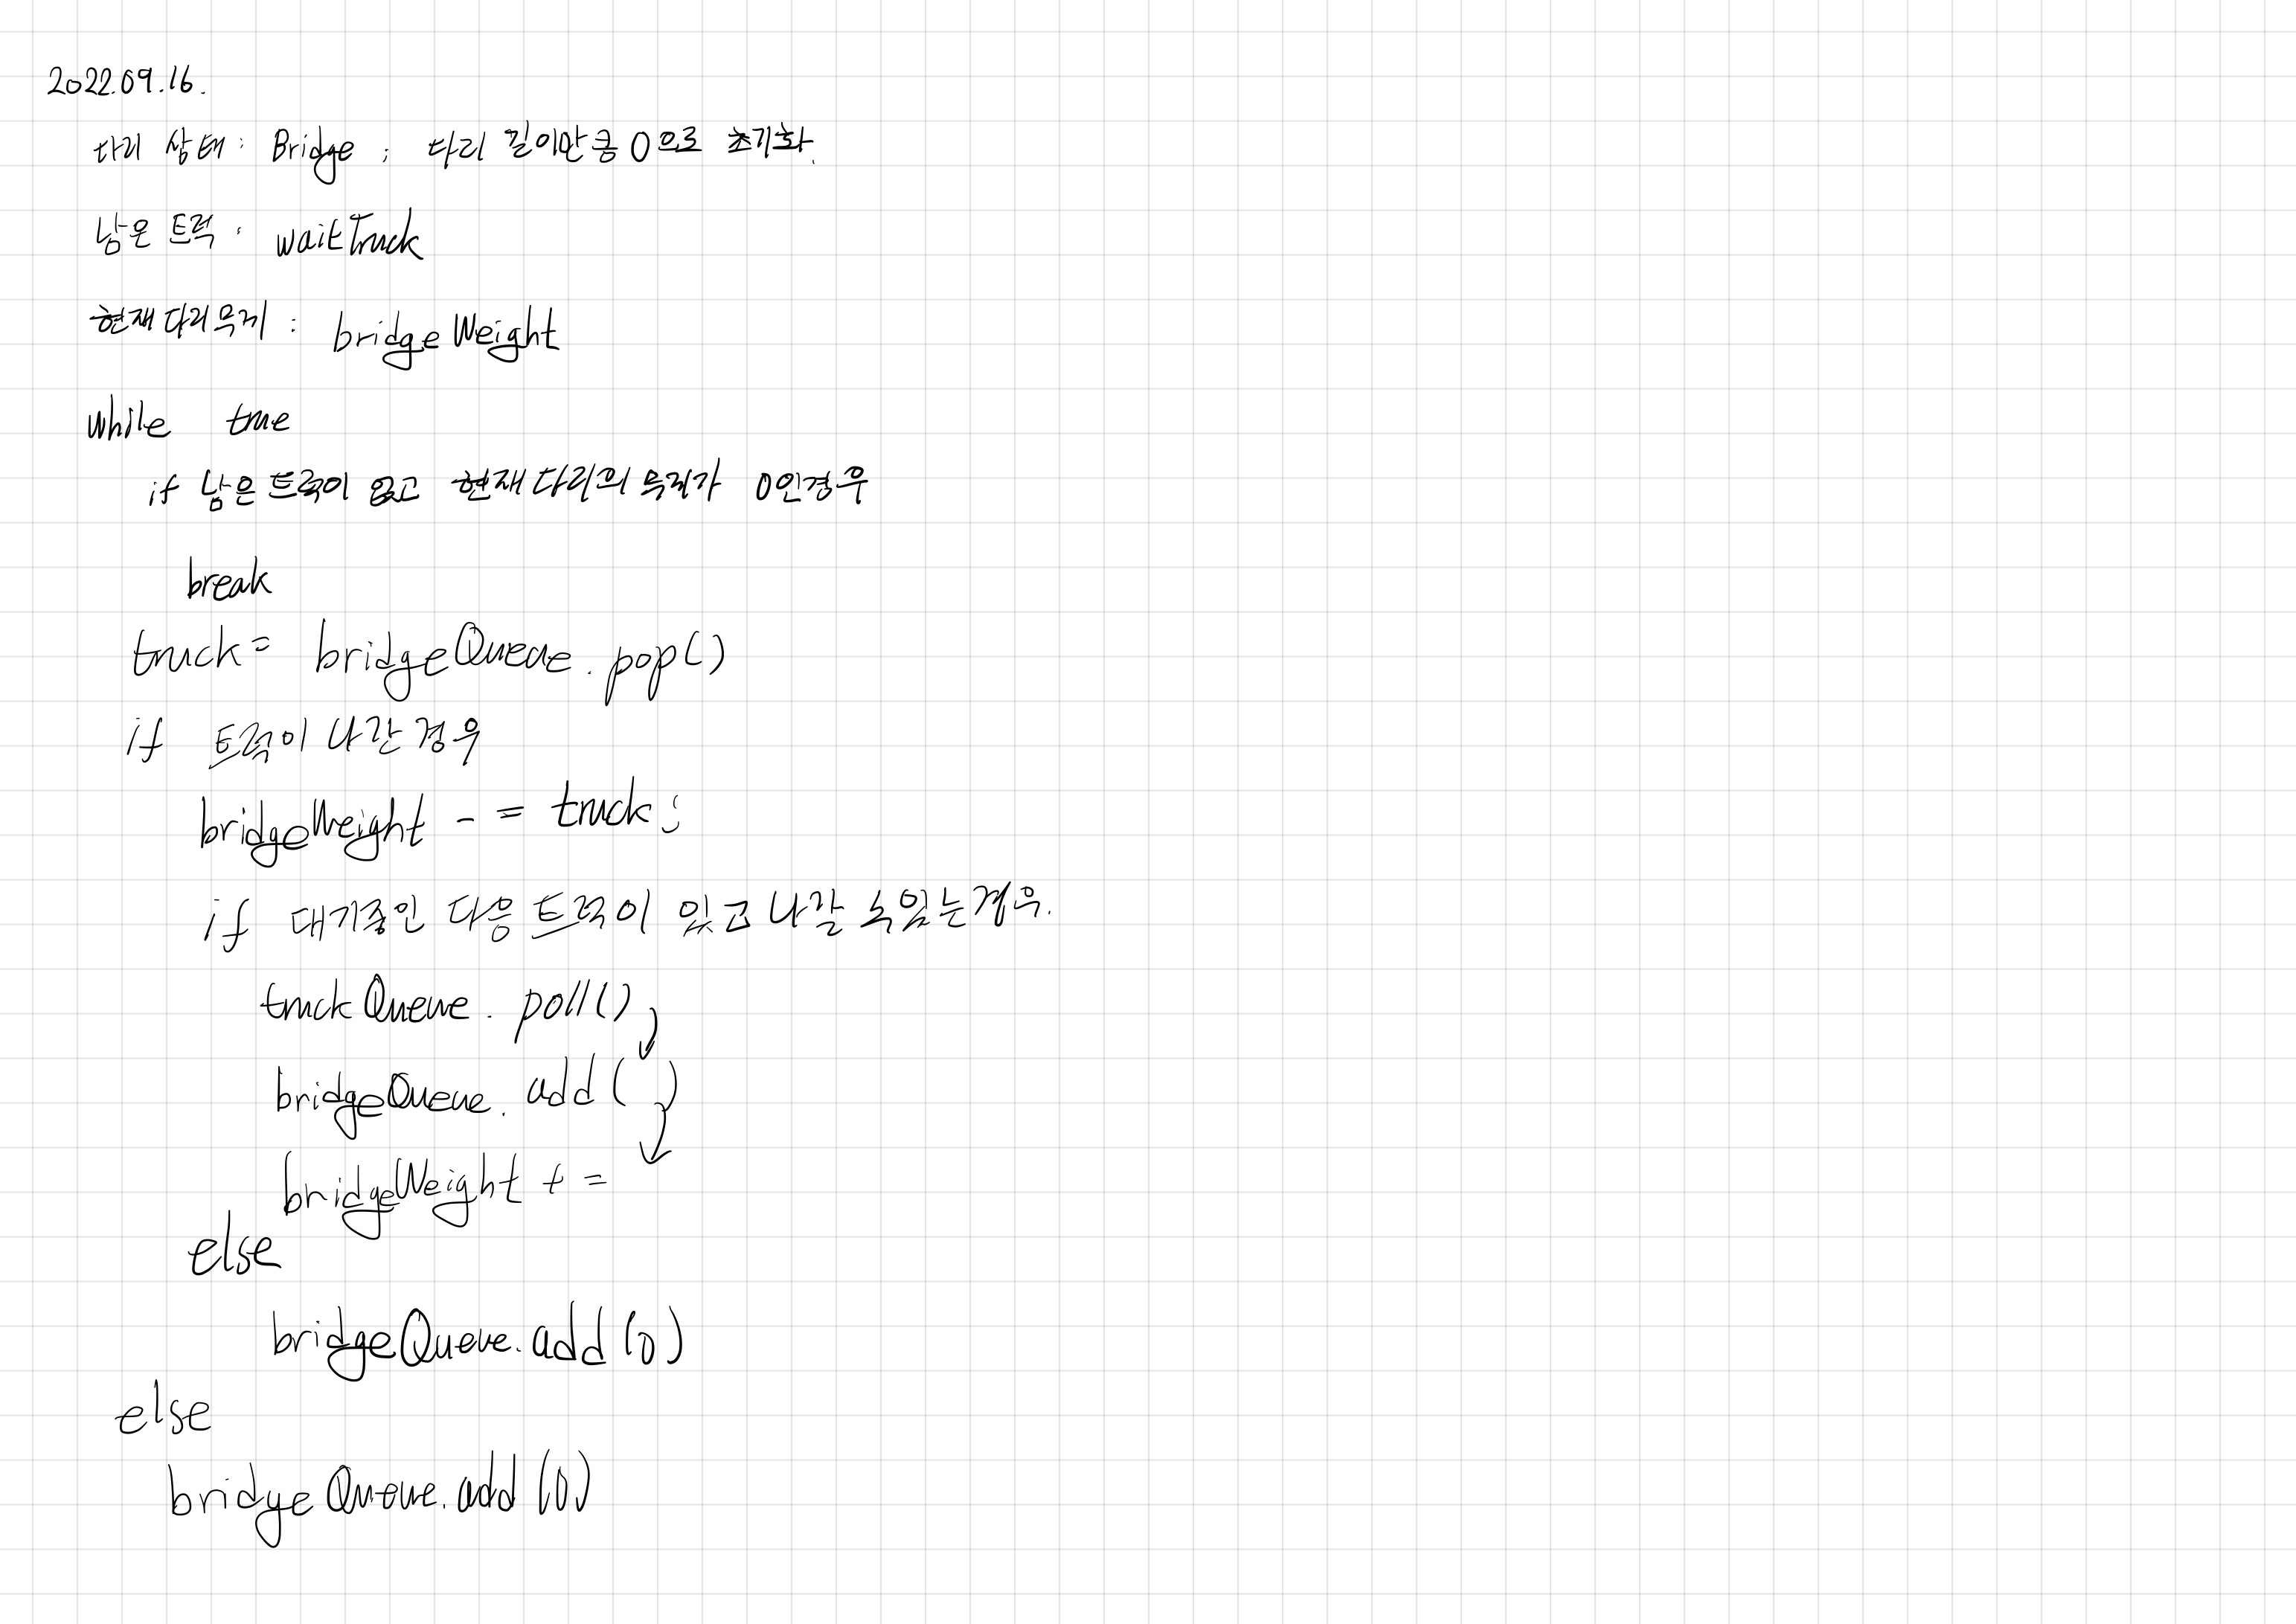 2022.09.16.
다리 상태 : Bridge ; 다리 길이만큼 0으로 초기화.
남은 트럭 : waitTruck
현재 다리 무게 : bridgeWeight
while true
if 남은 트럭이 없고 현재 다리의 무게가 0인경우
break
truck = bridgeQueue.pop()
if 트럭이 나간 경우
bridgeWeight -= truck;
if 대기중인 다음 트럭이 있고 나갈 수 있는 경우.
truckQueue.poll()
bridgeQueue.add( )
bridgeWeight +=
else
bridgeQueue.add(0)
else
bridgeQueue.add(0)